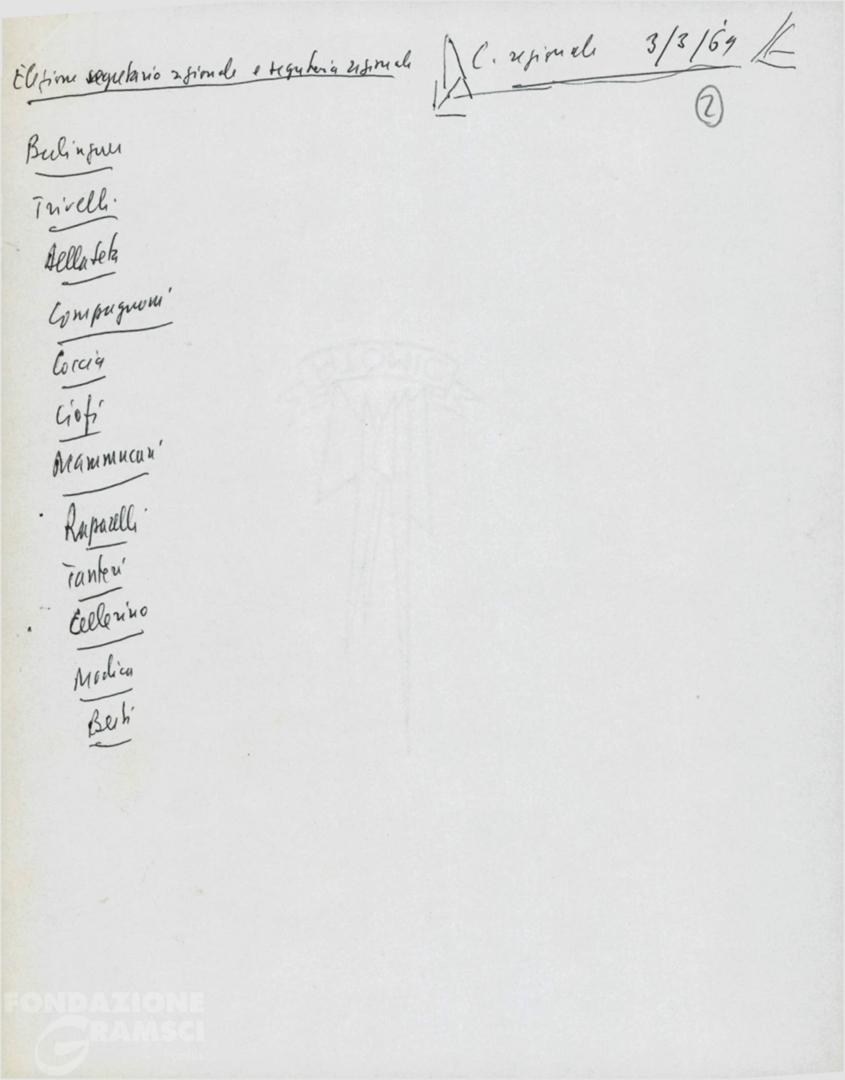 Elezione segretario regionale e segreteria regionale
C. regionale 3/3/69
2
Berlinguer
Trivelli
Della Seta
Compagnoni
Coccia
Ciofi
Mammucari
Raparelli
Fanteri
Modica
Berti
FONDAZIONE
GRAMSCI